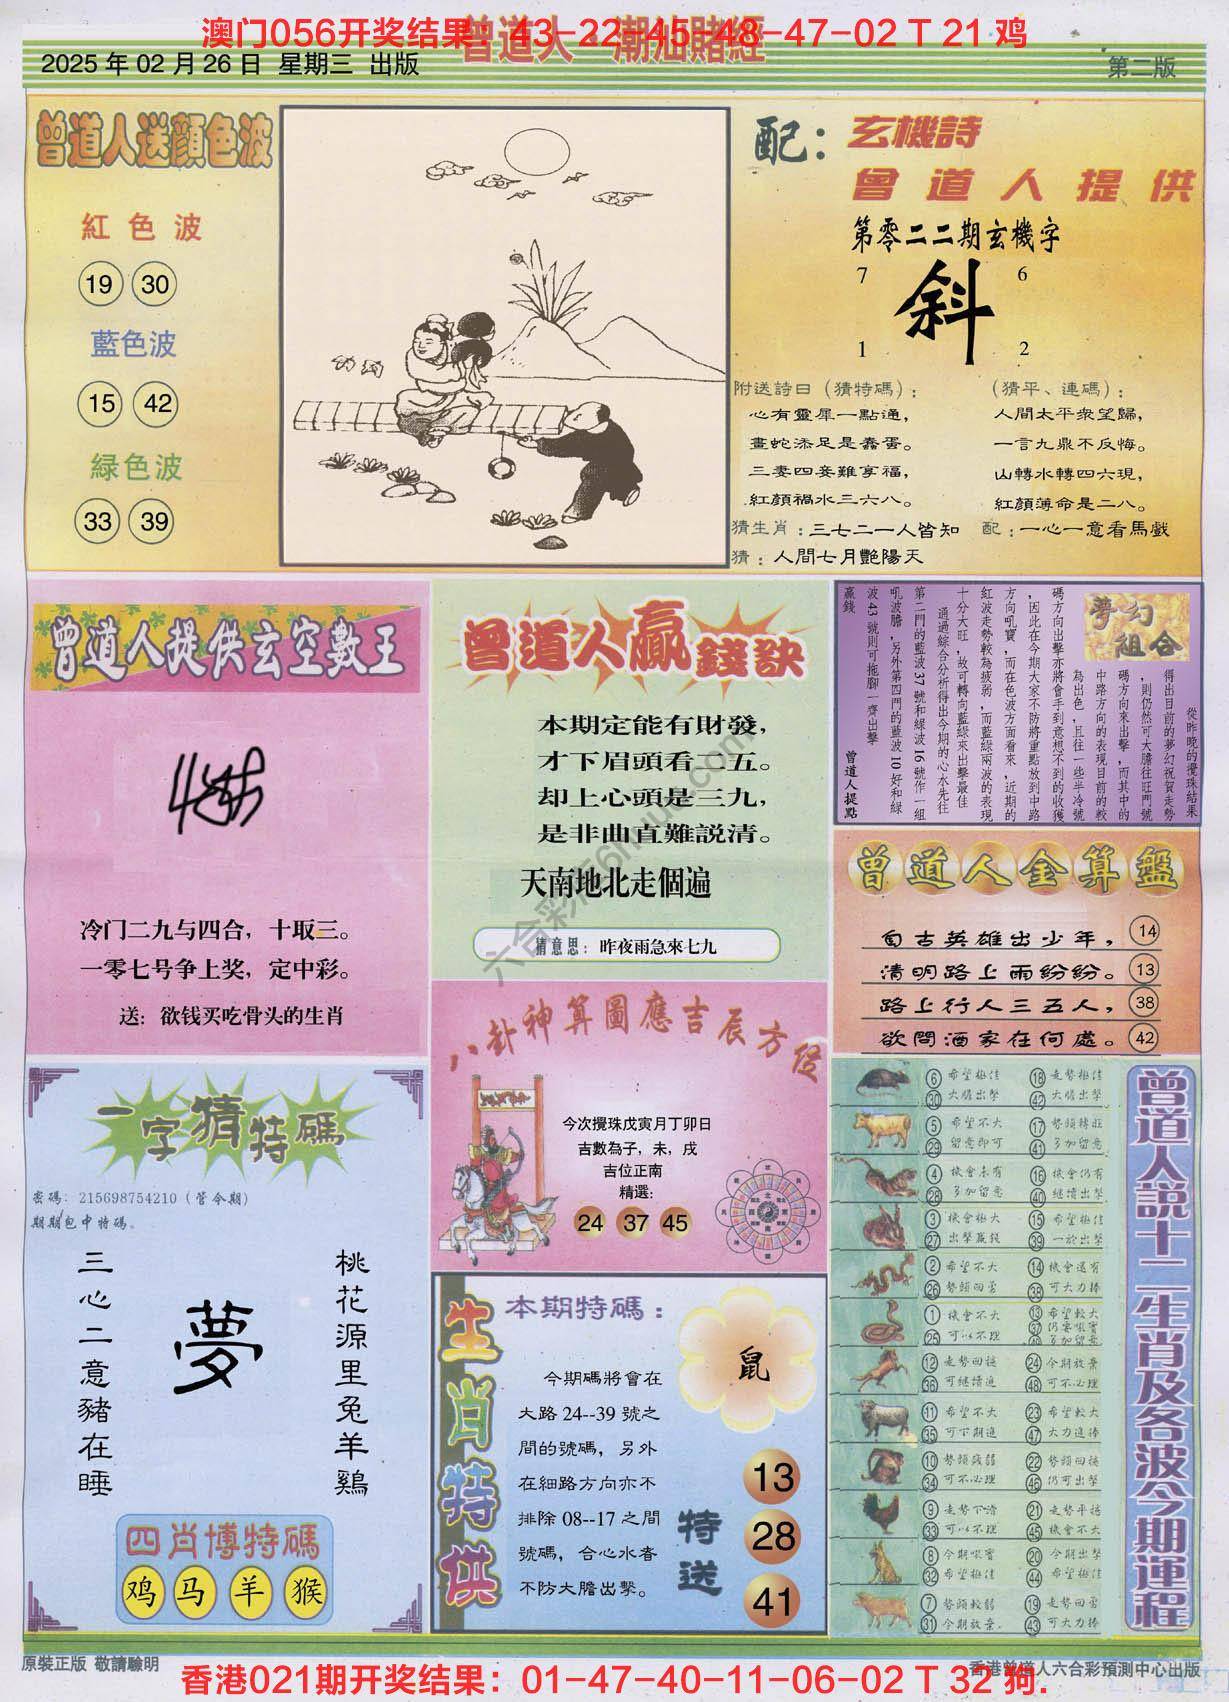 澳门056开奖结果：43-22-45-48-47-02 T 21 鸡
曾道人 潮汕賭經
2025 年 02 月 26 日 星期三 出版
第二版
曾道人送顏色波
紅色波
19 30
藍色波
15 42
緑色波
33 39
配：玄機詩
曾道人提供
第零二二期玄機字
7 6
斜
1 2
附送詩曰（猜特碼）：
心有靈犀一點通，
畫蛇添足是蠢蛋。
三妻四妾難享福，
紅顏禍水三六八。
（猜平、連碼）：
人間太平衆望歸，
一言九鼎不反悔。
山轉水轉四六現，
紅顏薄命是二八。
猜生肖：三七二一人皆知 配：一心一意看馬戲
猜：人間七月艷陽天
曾道人提供玄空數王
冷门二九与四合，十取三。
一零七号争上奖，定中彩。
送：欲钱买吃骨头的生肖
曾道人贏錢訣
本期定能有財發，
才下眉頭看二五。
却上心頭是三九，
是非曲直難説清。
天南地北走個遍
猜意思：昨夜雨急來七九
夢幻組合
從昨晚的攪珠結果
得出目前的夢幻祝賀走勢
，則仍然可大膽往旺門號
碼方向來出擊，而其中的
中路方向的表現目前的較
為出色，且往一些半冷號
碼方向出擊亦將會手到意想不到的收獲
，因此在今期大家不防將重點放到中路
方向吼寶，而在色波方面看來，近期的
紅波走勢較為疲弱，而藍緑兩波的表現
十分大旺，故可轉向藍緑來出擊最佳
通過綜合分析得出今期的心水先往
第二門的藍波 37 號和緑波 16 號作一組
吼波膽，另外第四門的藍波 10 好和緑
波 43 號則可拖腳一齊出擊
贏錢
曾道人提點
曾道人金算盤
自古英雄出少年， 14
清明路上雨紛紛。 13
路上行人三五人， 38
欲問酒家在何處。 42
八卦神算圖應吉辰方位
今次攪珠戊寅月丁卯日
吉數為子，未，戌
吉位正南
精選：
24 37 45
一字猜特碼
密碼：215698754210（管今期）
期期包中特碼。
三心二意豬在睡
夢
桃花源里兔羊鷄
四肖博特碼
鸡 马 羊 猴
生肖特供
本期特碼：
鼠
今期碼將會在
大路 24--39 號之
間的號碼，另外
在細路方向亦不
排除 08--17 之間
號碼，合心水者
不防大膽出擊。
特送
13
28
41
曾道人説十二生肖及各波今期運程
6 希望極佳 18 走勢極佳
30 大膽出擊 42 大膽出擊
5 希望不大 17 勢頭轉旺
29 留意即可 41 多加留意
4 機會未有 16 機會仍有
28 多加留意 40 繼續出擊
3 機會極大 15 希望極佳
27 出擊贏錢 39 一於出擊
2 希望不大 14 機會還有
26 勢頭回落 38 可大力捧
1 機會不大 13 希望較大
25 可以不理 37
12 走勢回穩 24 今期放棄
36 可繼續追 48 可不必理
11 希望不大 23 希望較大
35 可下期追 47 大力追捧
10 勢頭殘弱 22 勢頭回穩
34 可不必理 46 仍可出擊
9 走勢下滑 21 走勢平穩
33 可以不理 45 機會不大
8 今期吼實 20 今期出擊
32 希望極佳 44 希望極佳
7 勢頭較弱 19 走勢回落
31 今期放棄. 43 可大力捧
六合彩
原裝正版 敬請驗明
香港曾道人六合彩預測中心出版
香港021期开奖结果：01-47-40-11-06-02 T 32 狗.